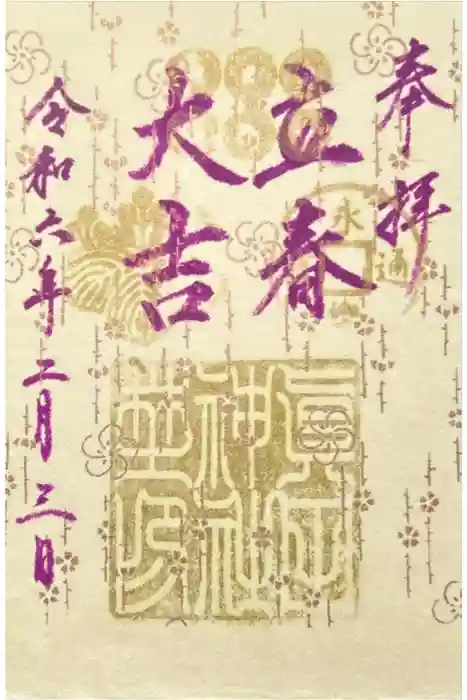 奉拝
立春
大吉
令和六年二月三日
眞田神社